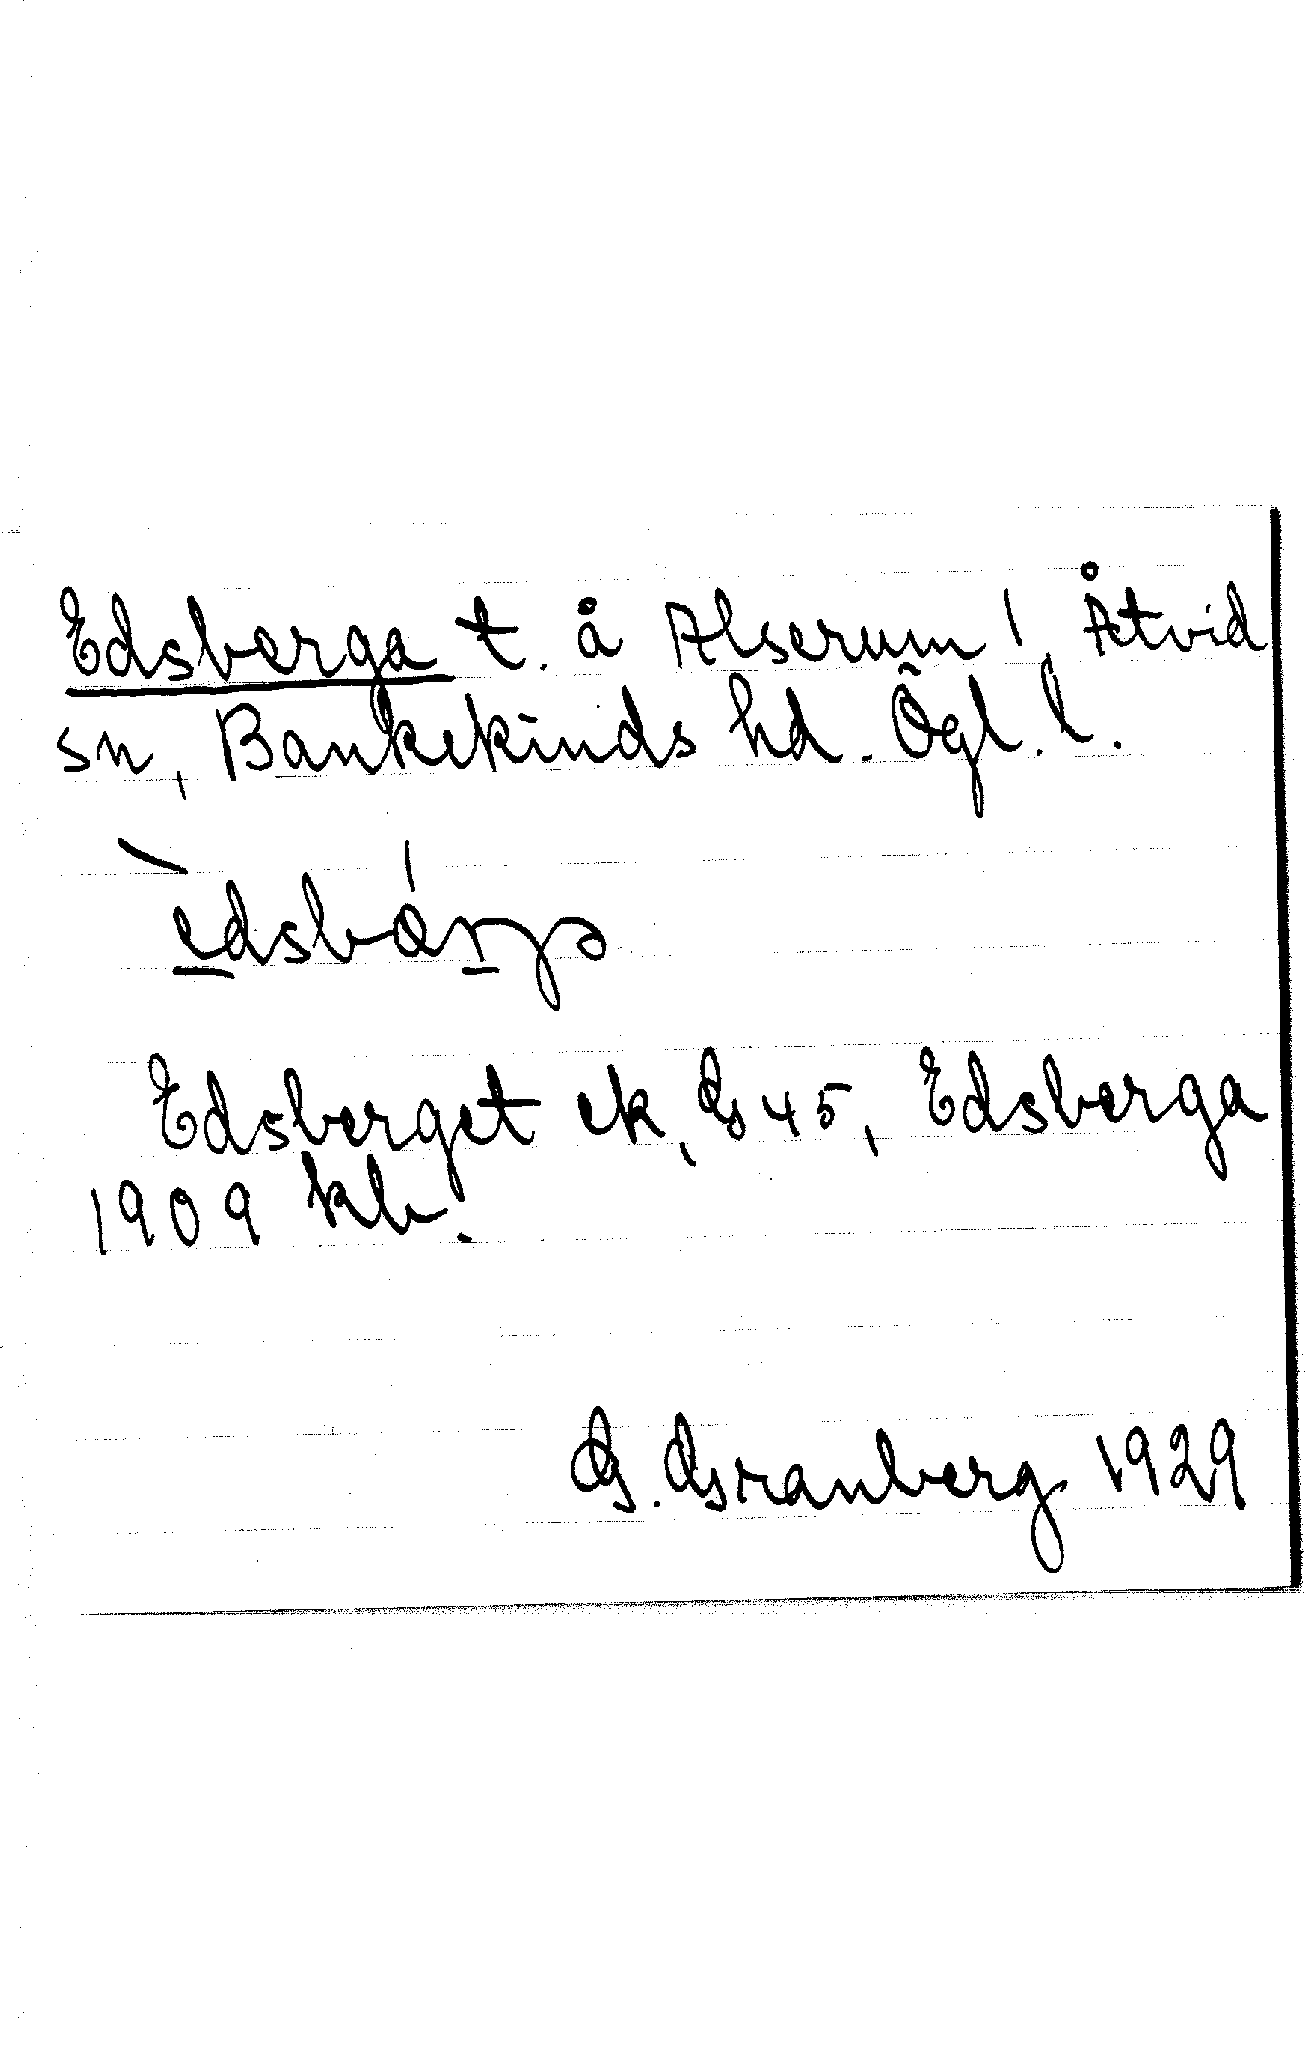 Edsberga t. å Alserum!, Åtvid
sn, Bankekinds hd. Ögl. l.
Edsberget ek, G 45, Edsberga
1909 kb.
G. Granberg 1929